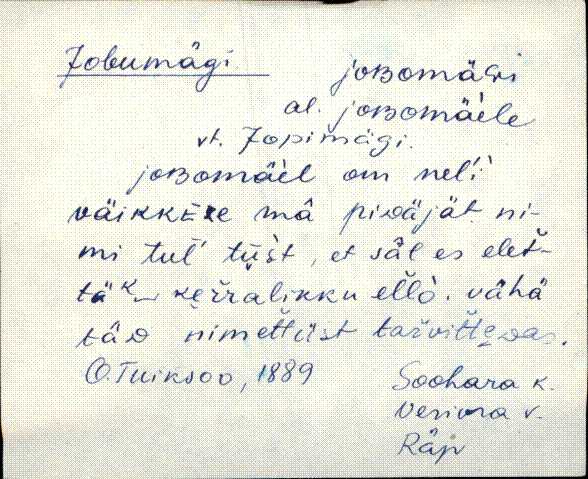 Jobumägi joʙomäGi
al. joʙomäèle
vt. Jopimägi.
joʙomäèl om nel'i
väikkEʀe mā piᴅäjät ni-
mi tul' tüst, et säl es elet̆-
täᴷ keřřalikku ellò. vähä
täᴅ nimet̆üst tařvit̆teᴅas.
O. Tuiksoo, 1889 Soohara k.
Veriora v.
Räp